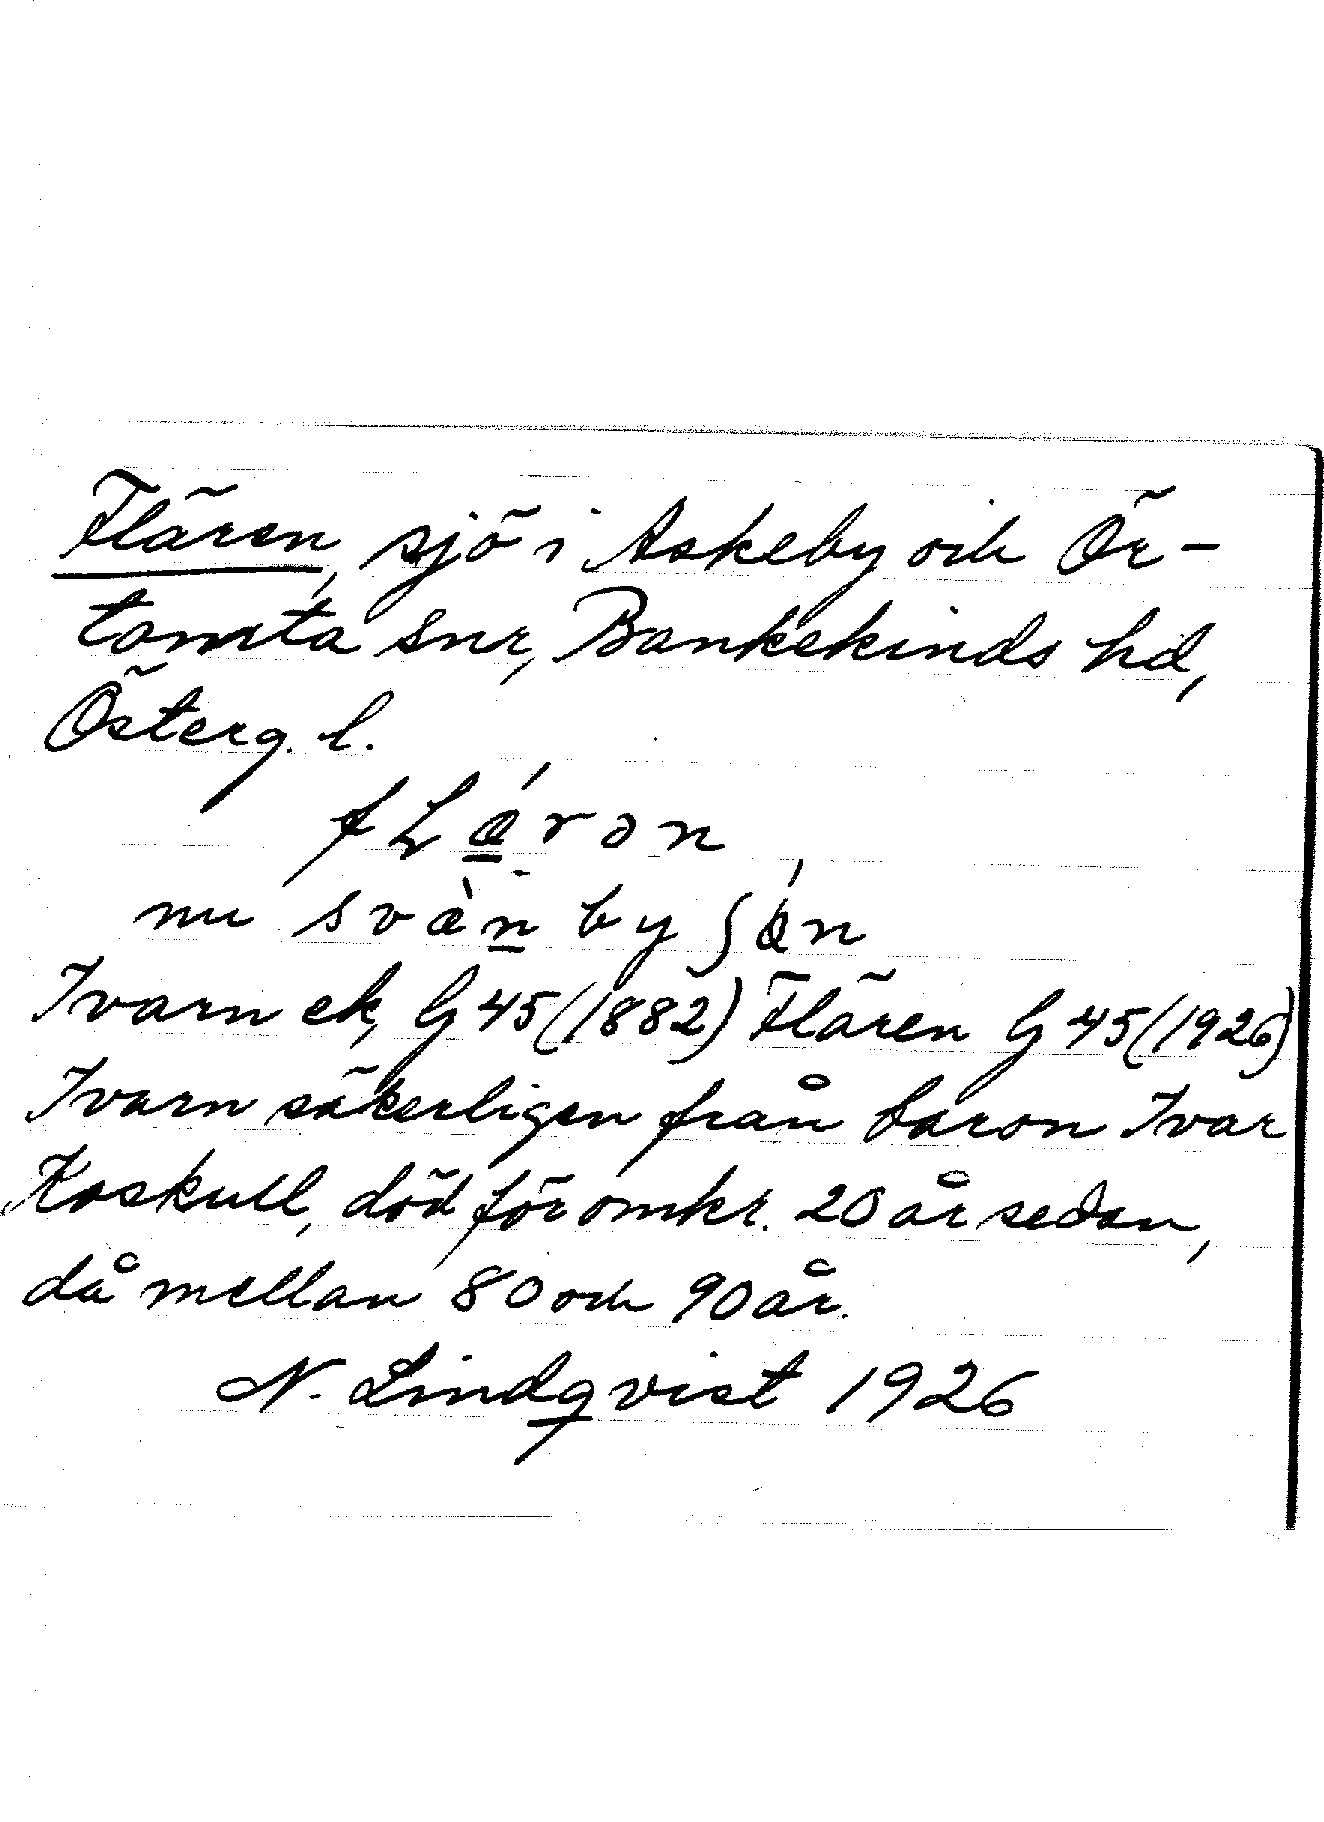 Flären, sjö i Askeby och Ör-
tomta snr, Bankekinds hd,
Österg. l.
fLǽron
nu svæ̀n by ʃǿn
Ivarn ek, G 45 (1882) Flären G 45 (1926)
Ivarn säkerligen från baron Ivar
Koskull, död för omkr. 20 år sedan,
då mellan 80 och 90 år.
N. Lindqvist 1926